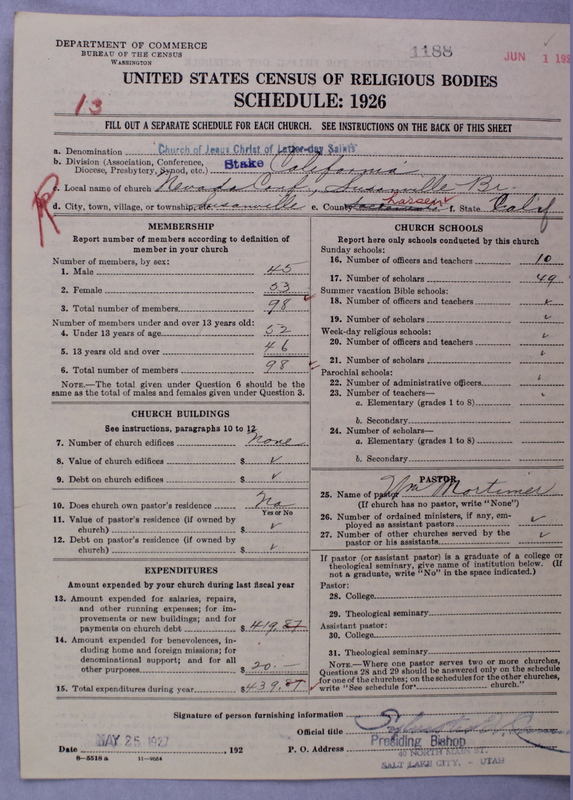 DEPARTMENT OF COMMERCE
BUREAU OF THE CENSUS
WASHINGTON
1188
JUN 1 192
UNITED STATES CENSUS OF RELIGIOUS BODIES
13
SCHEDULE: 1926
FILL OUT A SEPARATE SCHEDULE FOR EACH CHURCH. SEE INSTRUCTIONS ON THE BACK OF THIS SHEET
a. Denomination Church of Jesus Christ of Latter-day Saints
b. Division (Association, Conference, Diocese, Presbytery, Synod, etc.) Stake California
c. Local name of church Nevada Conf., Susanville Br.
d. City, town, village, or township, etc. Susanville e. County Sacramento Lassen f. State Calif
MEMBERSHIP
Report number of members according to definition of member in your church
Number of members, by sex:
1. Male 45
2. Female 53
3. Total number of members 98
Number of members under and over 13 years old:
4. Under 13 years of age 52
5. 13 years old and over 46
6. Total number of members 98
NOTE.—The total given under Question 6 should be the same as the total of males and females given under Question 3.
CHURCH BUILDINGS
See instructions, paragraphs 10 to 12
7. Number of church edifices None
8. Value of church edifices $ ✓
9. Debt on church edifices $ ✓
10. Does church own pastor's residence No
Yes or No
11. Value of pastor's residence (if owned by church) $ ✓
12. Debt on pastor's residence (if owned by church) $ ✓
EXPENDITURES
Amount expended by your church during last fiscal year
13. Amount expended for salaries, repairs, and other running expenses; for improvements or new buildings; and for payments on church debt $ 419.87
14. Amount expended for benevolences, including home and foreign missions; for denominational support; and for all other purposes $ 20.—
15. Total expenditures during year $ 439.87
CHURCH SCHOOLS
Report here only schools conducted by this church
Sunday schools:
16. Number of officers and teachers 10
17. Number of scholars 49
Summer vacation Bible schools:
18. Number of officers and teachers ✓
19. Number of scholars ✓
Week-day religious schools:
20. Number of officers and teachers ✓
21. Number of scholars ✓
Parochial schools:
22. Number of administrative officers ✓
23. Number of teachers—
a. Elementary (grades 1 to 8)
b. Secondary
24. Number of scholars—
a. Elementary (grades 1 to 8)
b. Secondary
PASTOR
25. Name of pastor Wm Mortimer
(If church has no pastor, write "None")
26. Number of ordained ministers, if any, employed as assistant pastors ✓
27. Number of other churches served by the pastor or his assistants ✓
If pastor (or assistant pastor) is a graduate of a college or theological seminary, give name of institution below. (If not a graduate, write "No" in the space indicated.)
Pastor:
28. College
29. Theological seminary
Assistant pastor:
30. College
31. Theological seminary
NOTE.—Where one pastor serves two or more churches, Questions 28 and 29 should be answered only on the schedule for one of the churches; on the schedules for the other churches, write "See schedule for church."
Signature of person furnishing information
Official title Presiding Bishop
Date MAY 25 1927 , 192 P. O. Address 40 NORTH MAIN ST.
SALT LAKE CITY, - UTAH
8—5518 a 11—9654